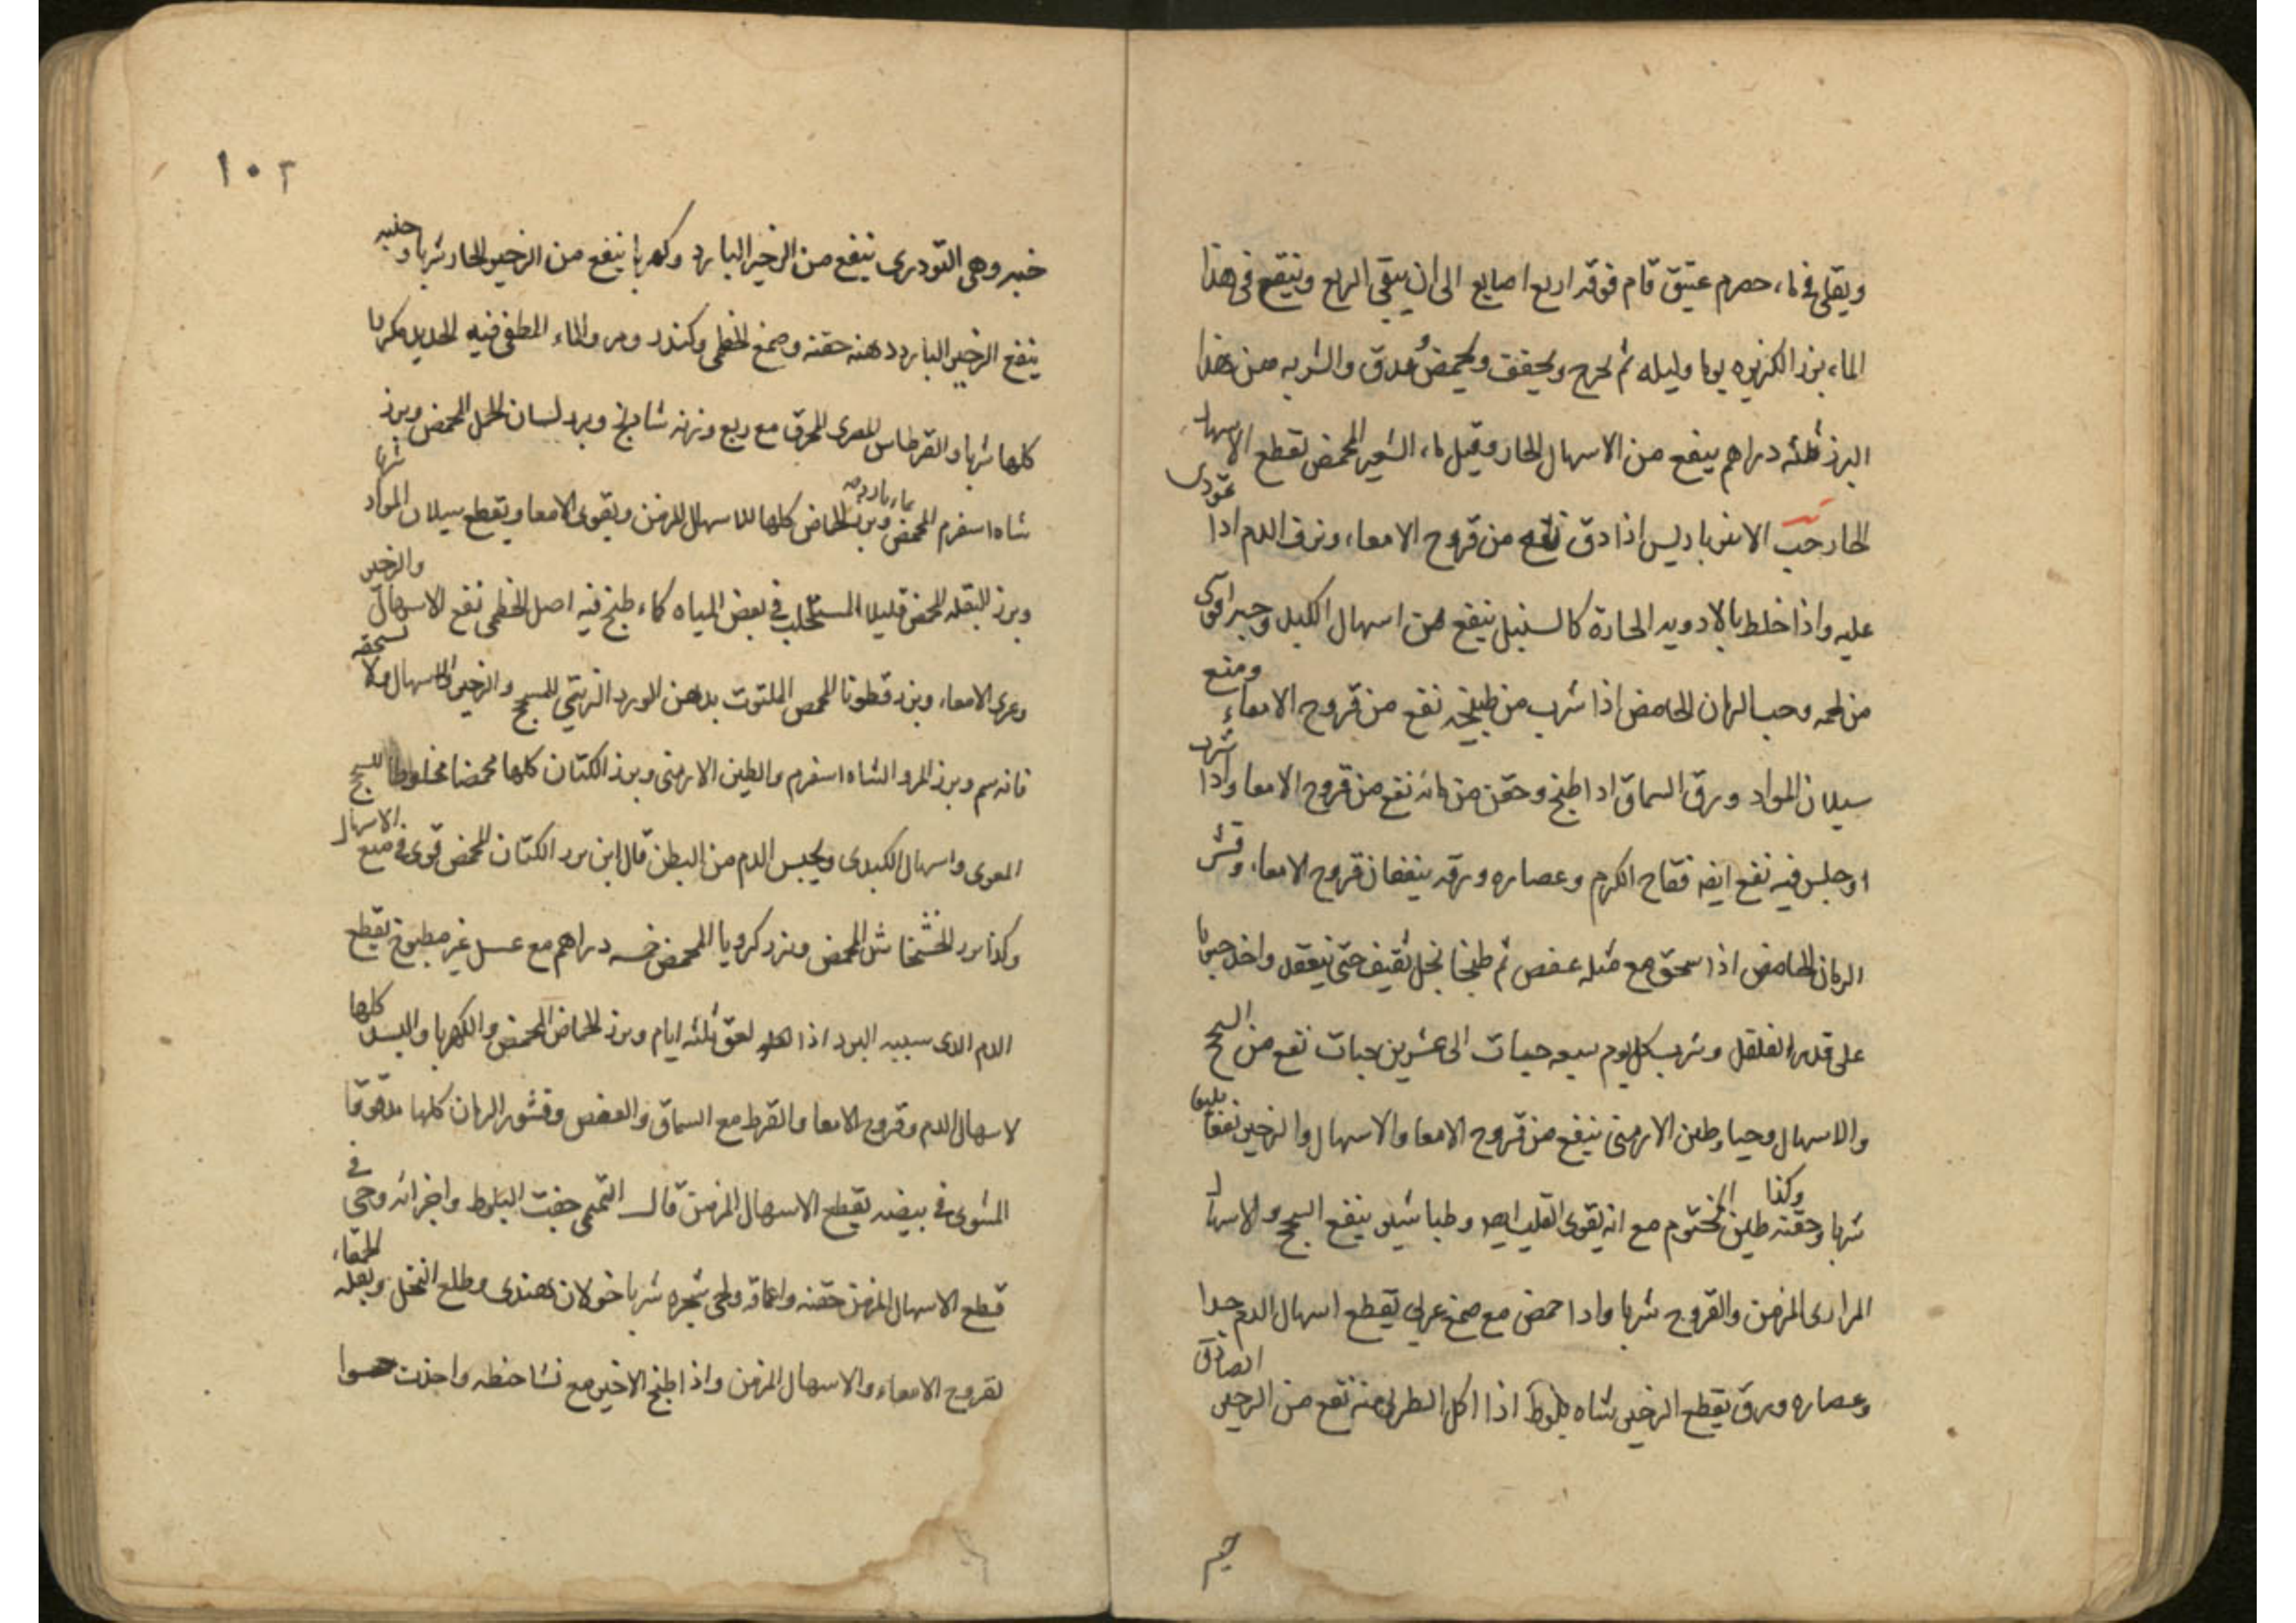 ويقلى في ماء حصرم عتيق قام فوقه اربع اصابع الى ان يبقى الربع وينقع في هذا
الماء بزر الكزبره يوما وليله ثم يخرج ويجفف ويحمض ويدق والشربه من هذا
البزر ثلثه دراهم ينفع من الاسهال الحار وقيل ماء الشعير المحمض يقطع الاسهال
الحار حب الانبرباريس اذا دق نفع من قروح الامعاء ونزف الدم اذا تمودى
عليه واذا خلط بالادويه الحارة كالسنبل ينفع من اسهال الكبد وحبه اقوى
من لحمه وحب الرمان الحامض اذا شرب من طبيخه نفع من قروح الامعاء ومنع
سيلان المواد ورق السماق اذا طبخ وحقن من مائه نفع من قروح الامعا واذا شرب
او جلس فيه نفع ايضه فقاح الكرم وعصاره ورقه ينفعان قروح الامعاء وقشر
الرمان الحامض اذا سحق مع مثله عفص ثم طبخا بخل ثقيف حتى ينعقد واخذ حبوبا
على قدر الفلفل وشرب كل يوم سبعه حبات الى عشرين حبات نفع من السحج
والاسهال وحيا وطين الارمنى ينفع من قروح الامعا والاسهال والزحير نفعا بليغا
شربا وحقنه وكذا طين المختوم مع انه يقوى القلب وطباشير ينفع السحج والاسهال
المرارى المزمن والقروح شربا واذا حمض مع صمغ عربى يقطع اسهال الدم جدا
وعصاره ورق يقطع الزحير شاه بلوط اذا اكل الطرى منه نفع من الزحير الصادق
خبه
١٠٢
خبه وهى التودرى ينفع من الزحير البارد وكهربا ينفع من الزحير الحار شربا و
ينفع الزحير البارد دهنه حقنه وصمغ الخطمى وكندر ومر والماء المطفى فيه الحديد مكررا
كلها شربا والقرطاس المصرى المحرق مع ربع وزنه شادنج وبزر لسان الحمل المحمض وبزر
شاه اسفرم المحمض بماء بارد وبزر الحماض كلها للاسهال المزمن ويقوى الامعا ويقطع سيلان المواد شربا
وبزر البقله المحمض قليلا المستحلب في بعض المياه كماء طبخ فيه اصل الخطمى نفع الاسهال والزحير
وعرى الامعاء وبزر قطونا المحمص الملتوت بدهن الورد الزيتى للسحج والزحير والاسهال ولا تسحقه
فانه سم وبزر المرو والشاه اسفرم والطين الارمنى وبزر الكتان كلها محمضا مخلوطا للسحج
المعوى واسهال الكبدى ويحبس الدم من البطن قال ابن بزر الكتان المحمض قوى في منع الاسهال
وكذا بزر الخشخاش المحمض وبزر كرويا المحمض خمسه دراهم مع عسل غير مطبوخ يقطع
الدم الذى سببه البرد اذا لعق ثلثه ايام وبزر الحماض المحمض والكهربا والبسد كلها
لاسهال الدم وقروح الامعا والقرط مع السماق والعفص وقشور الرمان كلها مدقوقا
المشوى في بيضه يقطع الاسهال المزمن قال التميمى جفت البلوط واجزائه وحى في
قطع الاسهال المزمن حقنه واقماعه ولحى شجره شربا خولان هندى وطلع النخل وبقله الحمقاء
لقروح الامعاء والاسهال المزمن واذا طبخ الاخير مع نشا حنطه واخذت حسوا